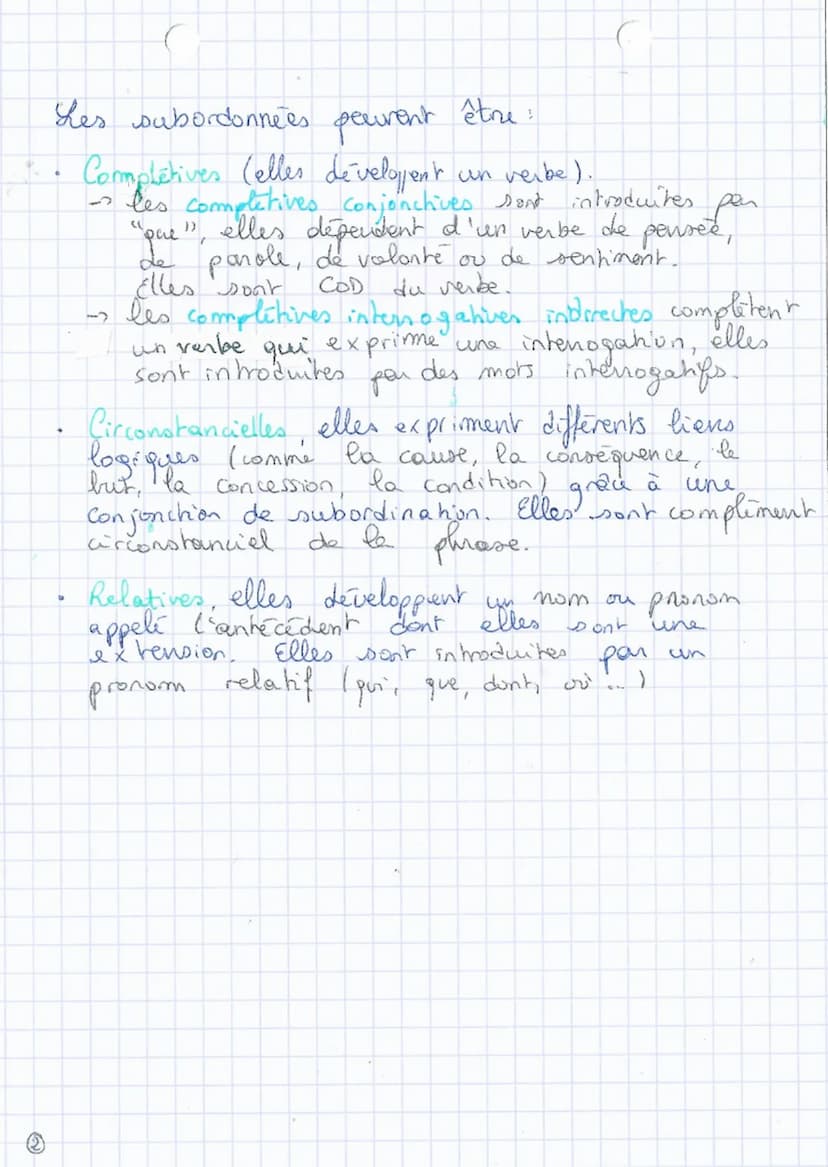 Les subordonnées peuvent être :
• Complétives (elles développent un verbe).
→ les complétives conjonctives sont introduites par
"que", elles dépendent d'un verbe de pensée,
de parole, de volonté ou de sentiment.
Elles sont COD du verbe.
→ les complétives interrogatives indirectes complètent
un verbe qui exprime une interrogation, elles
sont introduites par des mots interrogatifs.
• Circonstancielles, elles expriment différents liens
logiques (comme la cause, la conséquence, le
but, la concession, la condition) grâce à une
conjonction de subordination. Elles sont complément
circonstanciel de la phrase.
• Relatives, elles développent un nom ou pronom
appelé l'antécédent dont elles sont une
extension. Elles sont introduites par un
pronom relatif (qui, que, dont, où ...)
②